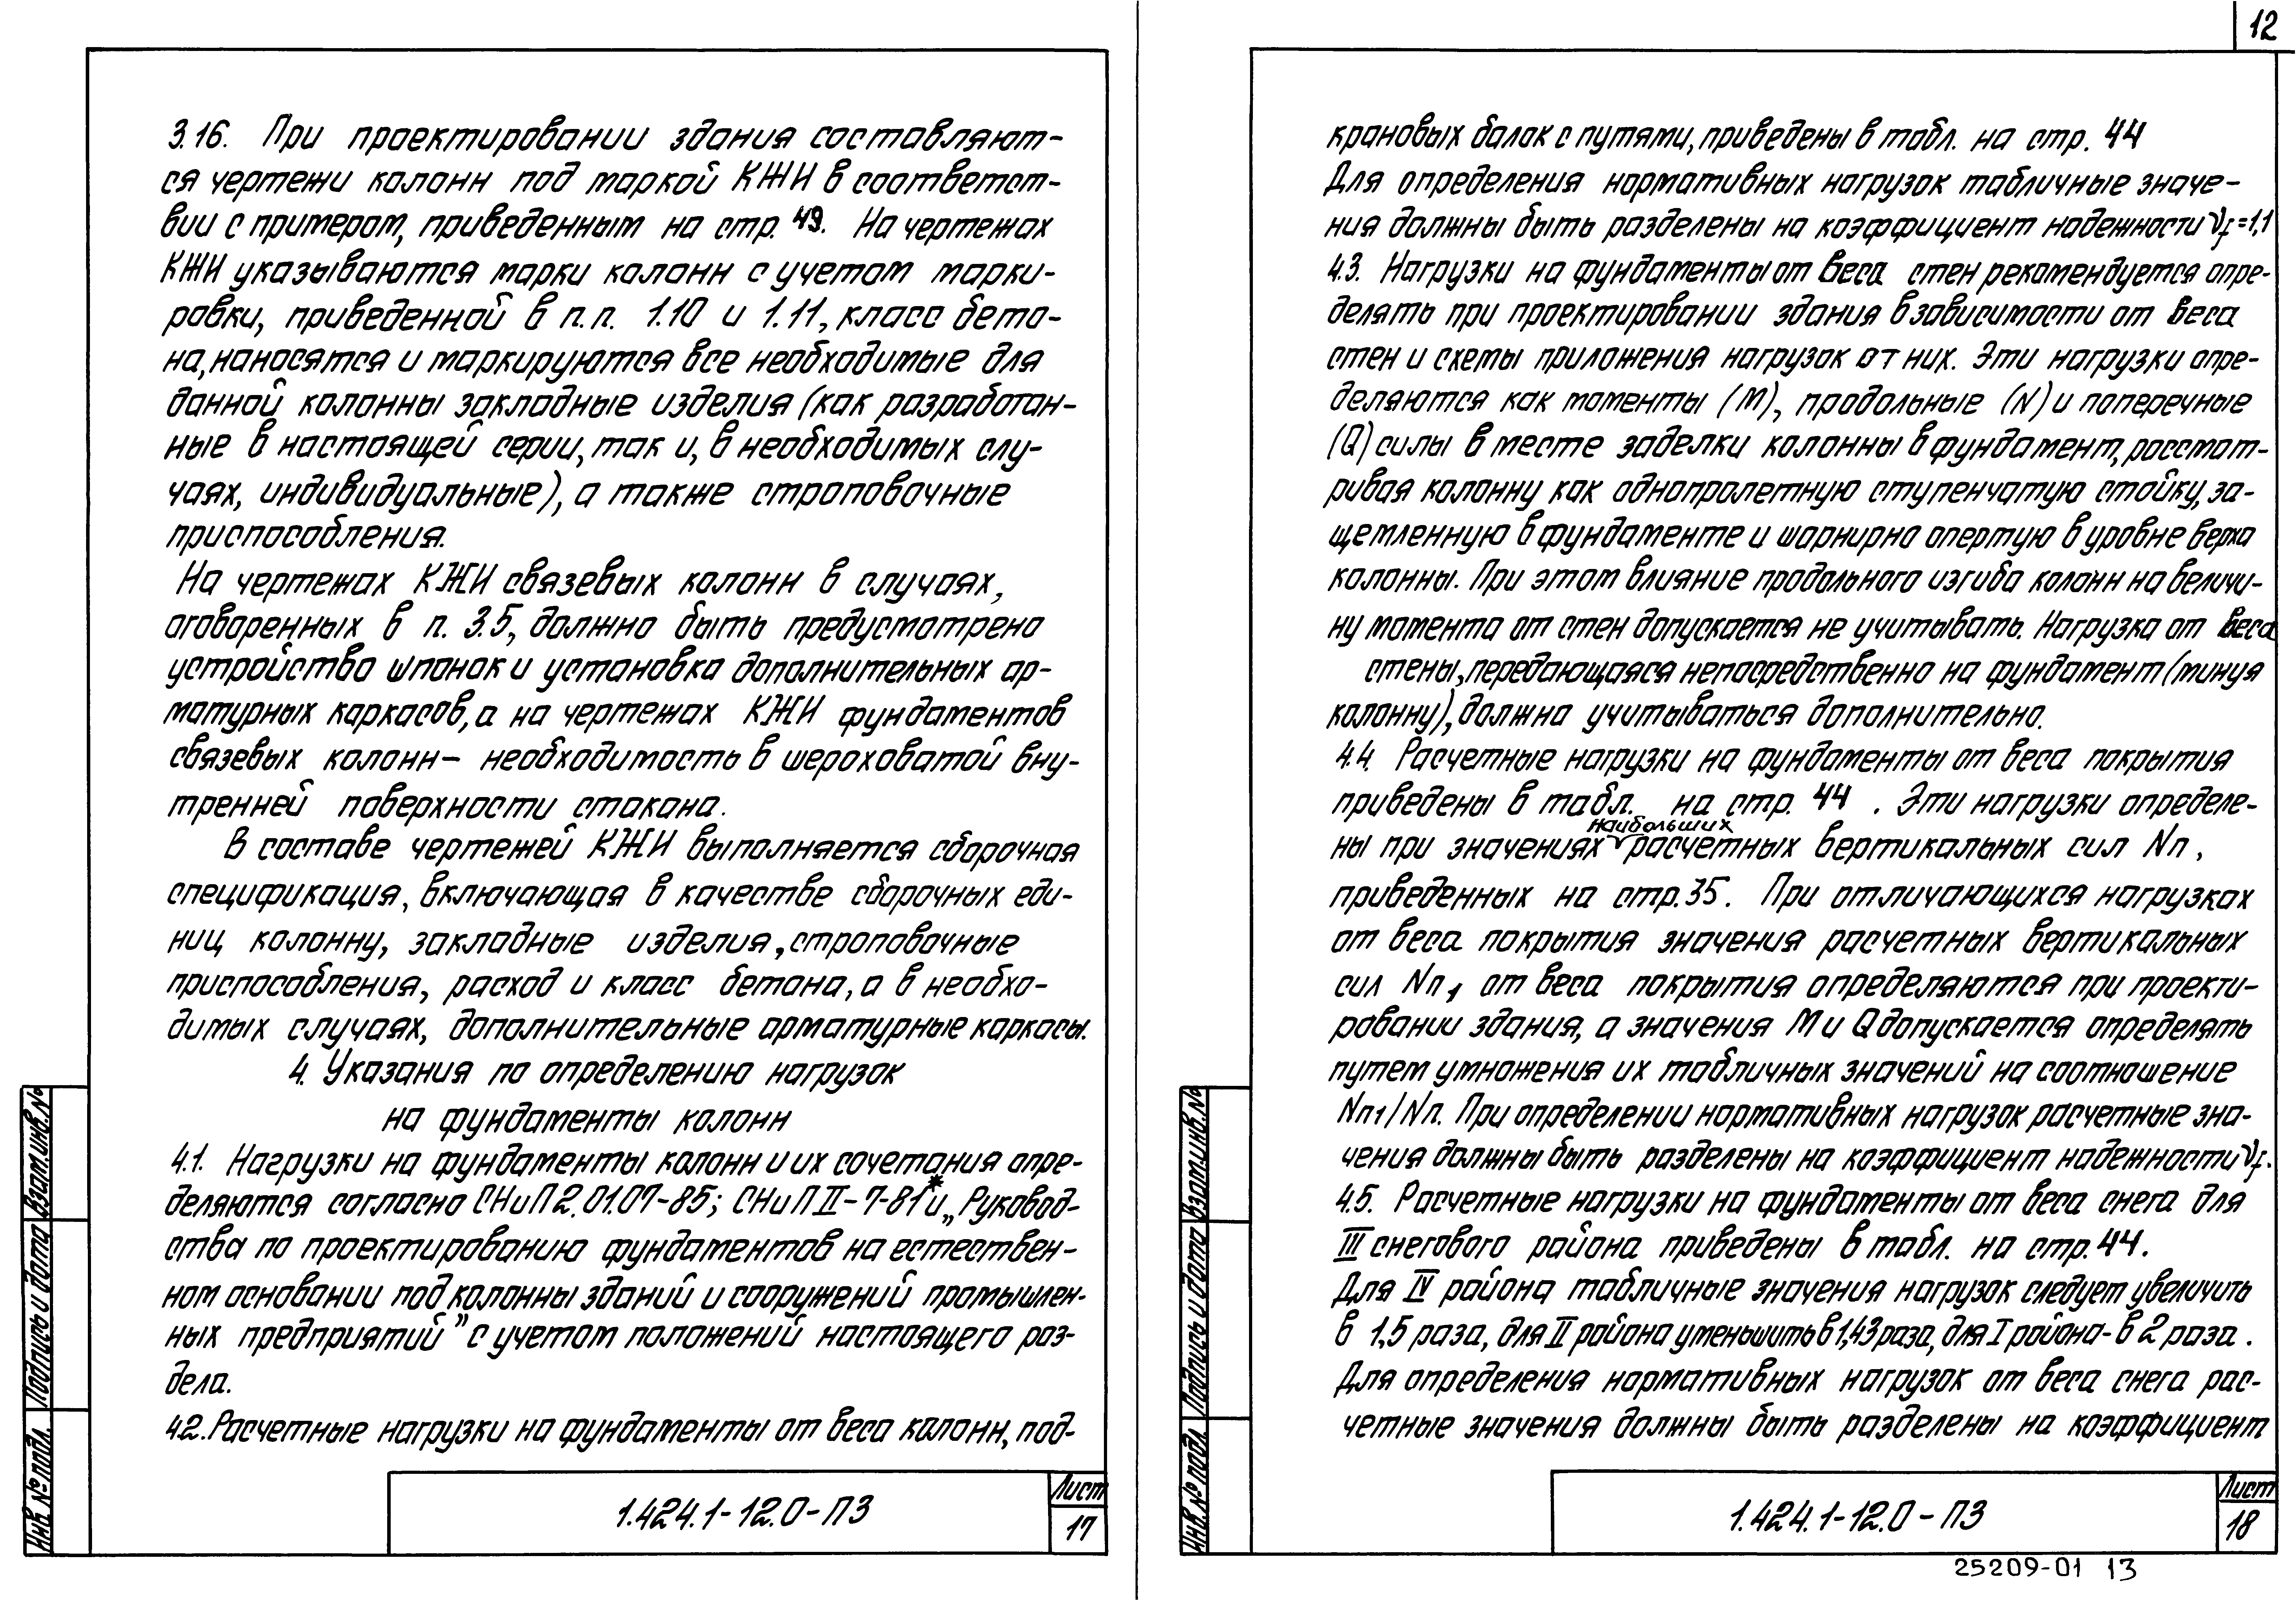 3.16. При проектировании здания составляют-
ся чертежи колонн под маркой КЖИ в соответст-
вии с примером, приведенным на стр. 49. На чертежах
КЖИ указываются марки колонн с учетом марки-
ровки, приведенной в п.п. 1.10 и 1.11, класс бето-
на, наносятся и маркируются все необходимые для
данной колонны закладные изделия (как разработан-
ные в настоящей серии, так и, в необходимых слу-
чаях, индивидуальные), а также строповочные
приспособления.
На чертежах КЖИ связевых колонн в случаях,
оговоренных в п. 3.5, должно быть предусмотрено
устройство шпонок и установка дополнительных ар-
матурных каркасов, а на чертежах КЖИ фундаментов
связевых колонн - необходимость в шероховатой вну-
тренней поверхности стакана.
В составе чертежей КЖИ выполняется сборочная
спецификация, включающая в качестве сборочных еди-
ниц колонну, закладные изделия, строповочные
приспособления, расход и класс бетона, а в необхо-
димых случаях, дополнительные арматурные каркасы.
4. Указания по определению нагрузок
на фундаменты колонн
4.1. Нагрузки на фундаменты колонн и их сочетания опре-
деляются согласно СНиП 2.01.07-85; СНиП II-7-81* и „Руковод-
ства по проектированию фундаментов на естествен-
ном основании под колонны зданий и сооружений промышлен-
ных предприятий" с учетом положений настоящего раз-
дела.
4.2. Расчетные нагрузки на фундаменты от веса колонн, под-
1.424.1-12.0-ПЗ
Лист
17
Инв. № подл.
Подпись и дата
Взам.инв.№
12
крановых балок с путями, приведены в табл. на стр. 44
Для определения нормативных нагрузок табличные значе-
ния должны быть разделены на коэффициент надежности γf=1,1
4.3. Нагрузки на фундаменты от веса стен рекомендуется опре-
делять при проектировании здания в зависимости от веса
стен и схемы приложения нагрузок от них. Эти нагрузки опре-
деляются как моменты (M), продольные (N) и поперечные
(Q) силы в месте заделки колонны в фундамент, рассмат-
ривая колонну как однопролетную ступенчатую стойку, за-
щемленную в фундаменте и шарнирно опертую в уровне верха
колонны. При этом влияние продольного изгиба колонн на величи-
ну момента от стен допускается не учитывать. Нагрузка от веса
стены, передающаяся непосредственно на фундамент (минуя
колонну), должна учитываться дополнительно.
4.4. Расчетные нагрузки на фундаменты от веса покрытия
приведены в табл. на стр. 44 . Эти нагрузки определе-
ны при значениях наибольших расчетных вертикальных сил Nп,
приведенных на стр. 35. При отличающихся нагрузках
от веса покрытия значения расчетных вертикальных
сил Nп1 от веса покрытия определяются при проекти-
ровании здания, а значения M и Q допускается определять
путем умножения их табличных значений на соотношение
Nп1/Nп. При определении нормативных нагрузок расчетные зна-
чения должны быть разделены на коэффициент надежности γf.
4.5. Расчетные нагрузки на фундаменты от веса снега для
III снегового района приведены в табл. на стр. 44.
Для IV района табличные значения нагрузок следует увеличить
в 1,5 раза, для II района уменьшить в 1,43 раза, для I района - в 2 раза.
Для определения нормативных нагрузок от веса снега рас-
четные значения должны быть разделены на коэффициент
1.424.1-12.0-ПЗ
Лист
18
Инв. № подл.
Подпись и дата
Взам.инв.№
25209-01 13